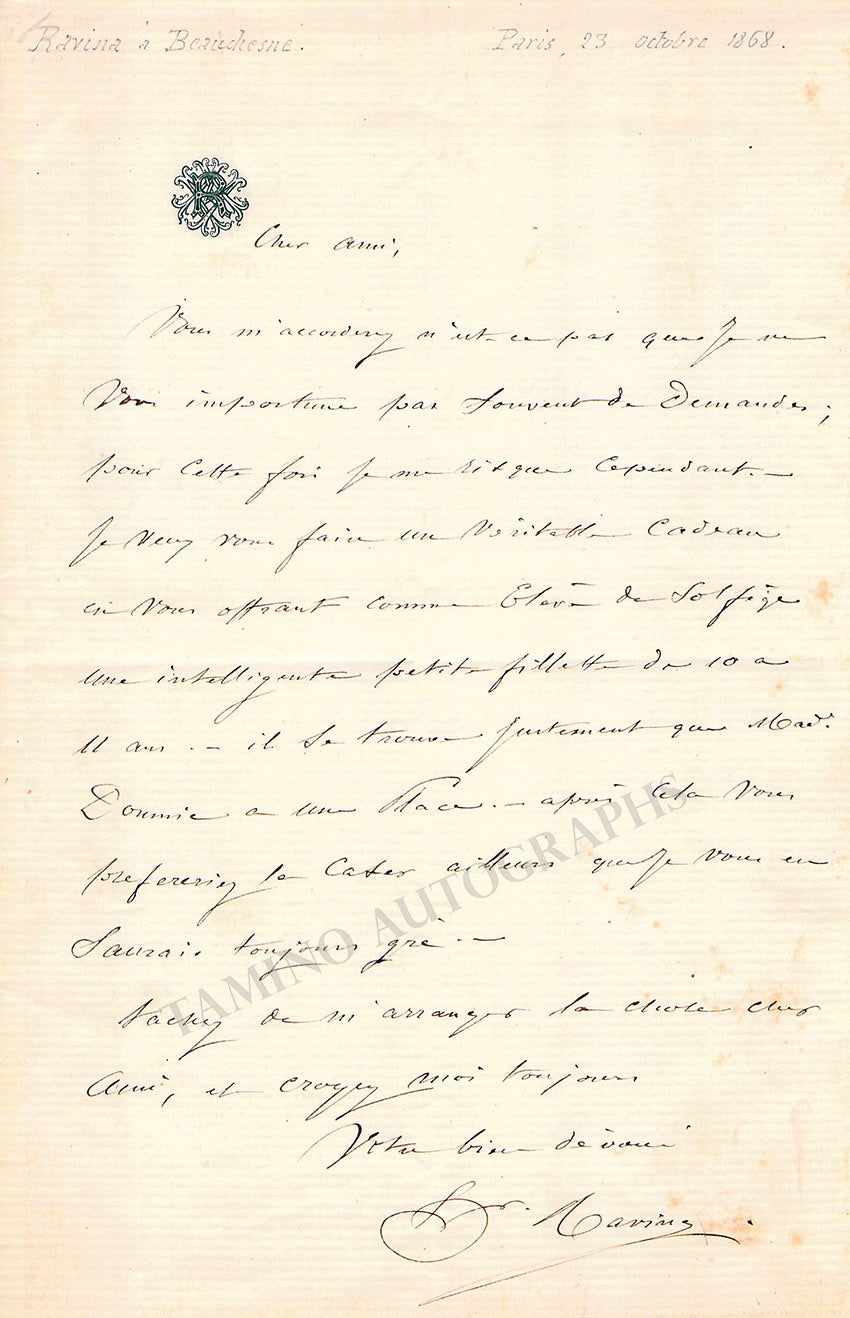 Ravina à Beauchesne.
Paris, 23 octobre 1868.
R
Cher ami,
Vous m'accorderez n'est-ce pas que Je ne
Vous importune pas Souvent de Demandes;
pour Cette fois Je me risque Cependant. —
Je Veux vous faire un Véritable Cadeau
en Vous offrant comme Elève de Solfège
une intelligente petite fillette de 10 a
11 ans. — il Se trouve Justement que Mad.
a une Place. — après Cela Vous
prefereriez la Caser ailleurs que Je Vous en
Saurais toujours gré. —
tachez de m'arranger la chose cher
Ami, et croyez moi toujours
Votre bien dévoué
Ravina.
TAMINO AUTOGRAPHS